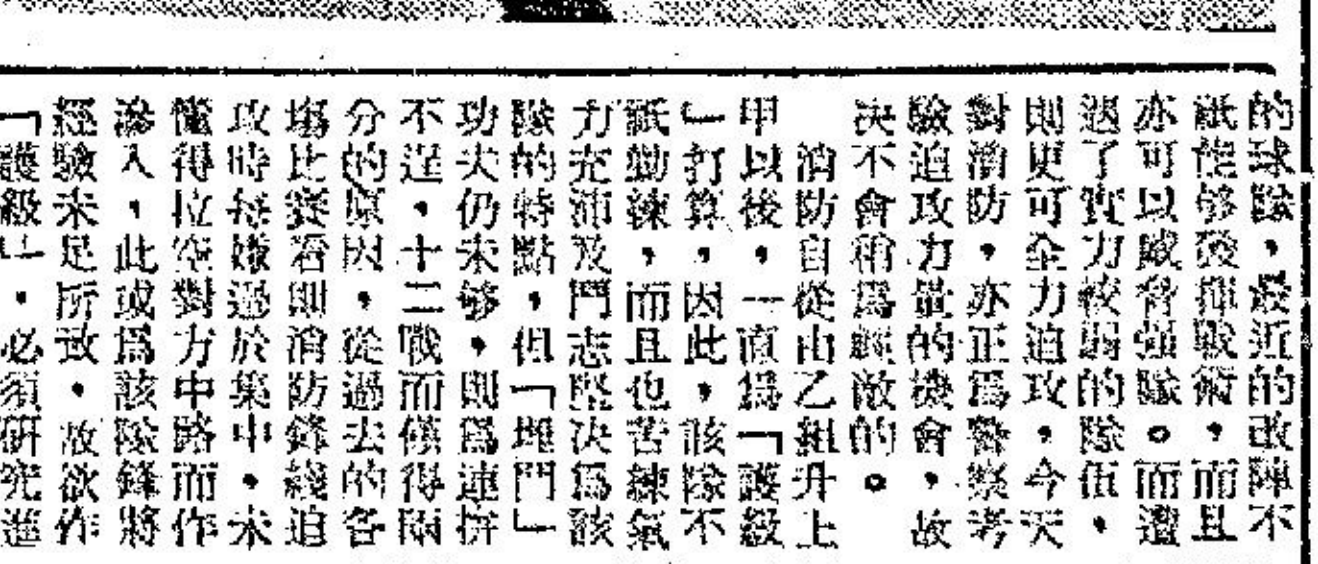 的球隊，最近的改陣不
祇能够發揮戰術，而且
亦可以威脅强隊。而遭
遇了實力較弱的隊伍，
則更可全力迫攻，今天
對消防，亦正爲警察考
驗迫攻力量的機會，故
决不會稍爲輕敵的。
消防自從由乙組升上
甲以後，一直爲「護級
」打算，因此，該隊不
祇勤練，而且也苦練氣
力充沛及鬥志堅决爲該
隊的特點，但「埋門」
功夫仍未够，則爲連拼
不逞，十二戰而僅得兩
分的原因，從過去的各
塲比賽看則消防鋒綫迫
攻時每嫌過於集中，未
懂得拉空對方中路而作
滲入，此或爲該隊鋒將
經驗未足所致，故欲作
「護級」，必須研究進